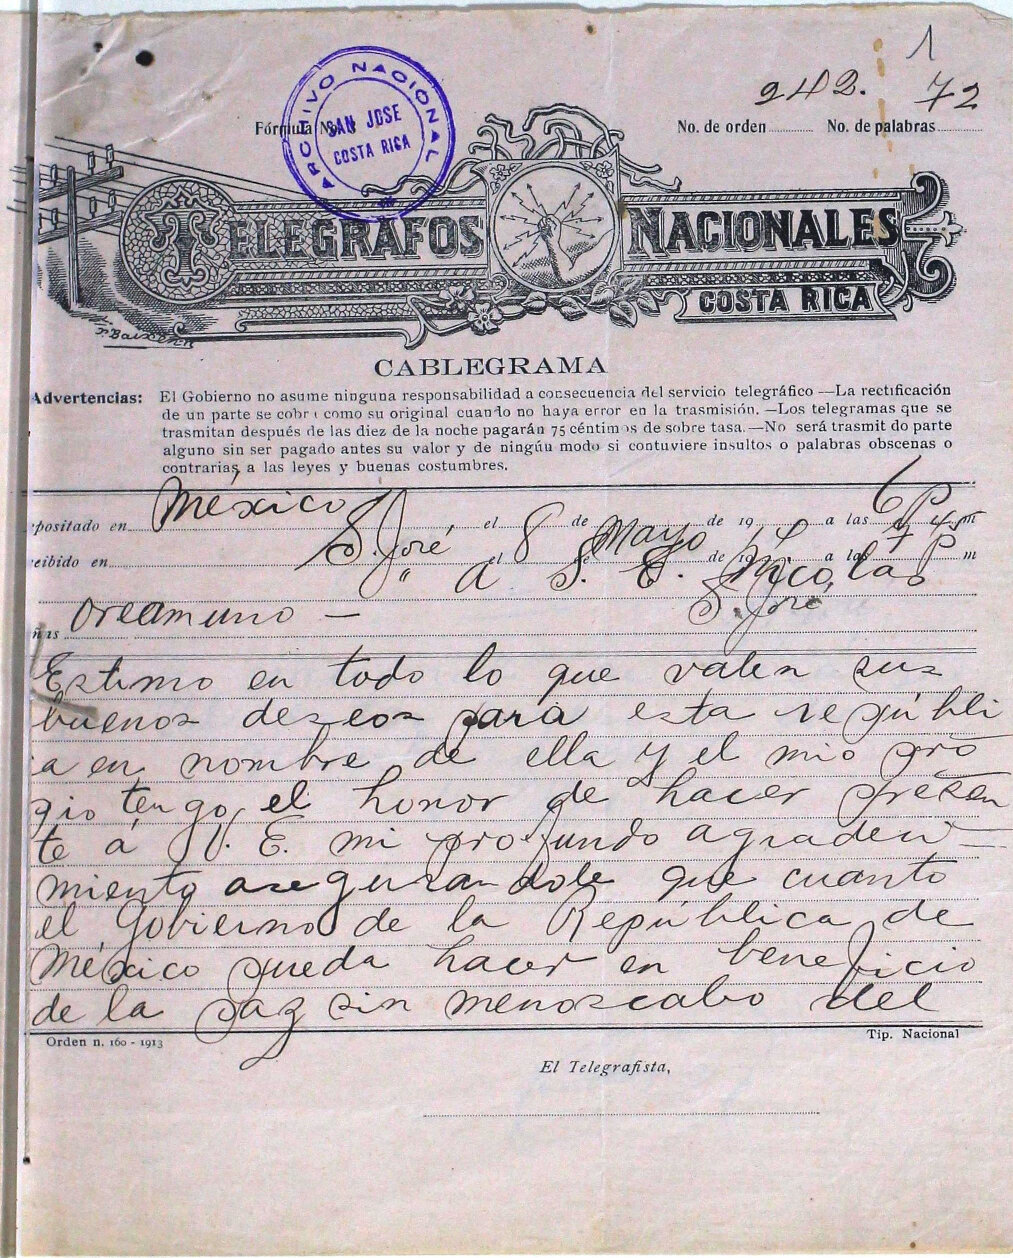 1
242. 72
Fórmula No.
No. de orden No. de palabras
ARCHIVO NACIONAL
SAN JOSE
COSTA RICA
TELEGRAFOS NACIONALES
COSTA RICA
CABLEGRAMA
Advertencias: El Gobierno no asume ninguna responsabilidad a consecuencia del servicio telegráfico —La rectificación
de un parte se cobr como su original cuando no haya error en la trasmisión. —Los telegramas que se
trasmitan después de las diez de la noche pagarán 75 céntimos de sobre tasa.—No será trasmit do parte
alguno sin ser pagado antes su valor y de ningún modo si contuviere insultos o palabras obscenas o
contrarias a las leyes y buenas costumbres.
epositado en México el 8 de Mayo de 1914 a las 6 P m
ecibido en S. José el " de " de 19 a las 7 45 P m
A S. E. Nicolas
Oreamuno — S. José
ñas
Estimo en todo lo que valen sus
buenos deseos para esta repúbli
ca en nombre de ella y el mio pro
pio tengo el honor de hacer presen
te á V. E. mi profundo agradeci-
miento asegurandole que cuanto
el Gobierno de la República de
México pueda hacer en beneficio
de la paz sin menoscabo del
Orden n. 160 - 1913 Tip. Nacional
El Telegrafista,